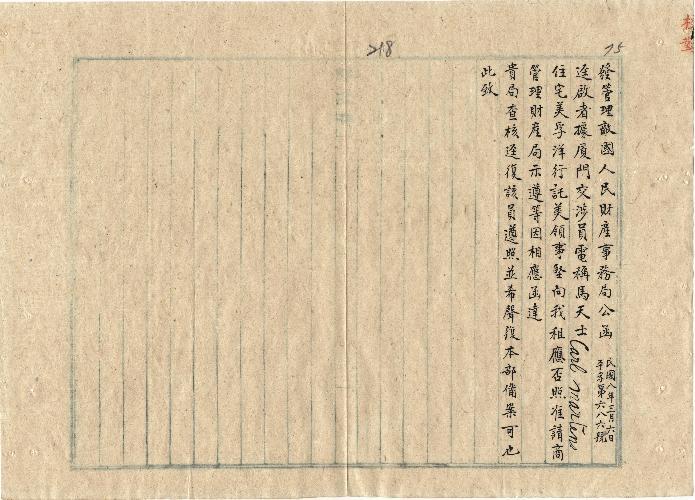 75
218
發管理敵國人民財產事務局公函
民國八年三月六日
平字第六八六號
逕啟者據厦門交涉員電稱馬天士 Carl Martens
住宅美孚洋行託美領事堅向我租應否照准請商
管理財產局示遵等因相應函達
貴局查核逕復該員遵照並希聲復本部備案可也
此致